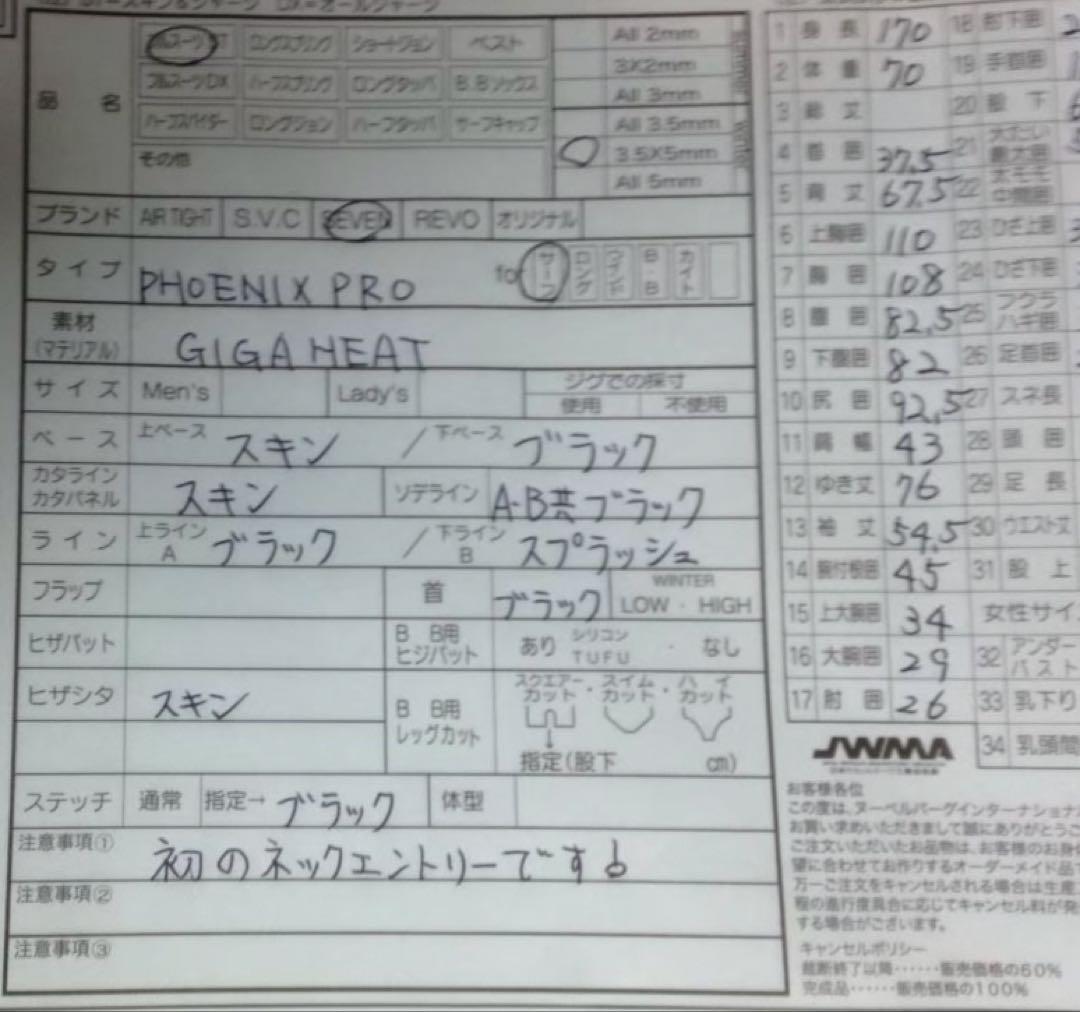 DX=オールジャージ
品 名
フルスーツ ST ロングスプリング ショートジョン ベスト
フルスーツDX ハーフスプリング ロングタッパ B.Bソックス
ハーフスパイダー ロングジョン ハーフタッパ サーフキャップ
その他
All 2mm
3X2mm
All 3mm
All 3.5mm
3.5X5mm
All 5mm
ブランド AIR TIGHT S.V.C SEVEN REVO オリジナル
タイプ PHOENIX PRO for サーフ ロング ウインド B・B カイト
素材
(マテリアル) GIGA HEAT
サイズ Men's Lady's ジグでの採寸
使用 不使用
ベース 上ベース スキン / 下ベース ブラック
カタライン
カタパネル スキン ソデライン A・B共ブラック
ライン 上ライン A ブラック / 下ライン B スプラッシュ
フラップ 首 ブラック WINTER
LOW・HIGH
ヒザパット B B用
ヒジパット あり シリコン TUFU ・ なし
ヒザシタ スキン B B用
レッグカット スクエアーカット・スイムカット・ハイカット
指定(股下 cm)
ステッチ 通常 指定→ ブラック 体型
注意事項① 初のネックエントリーです
注意事項②
注意事項③
1 身長 170 18 肘下囲
2 体重 70 19 手首囲
3 総丈 20 股下
4 首囲 37.5 21 太もも最大囲
5 背丈 67.5 22 太モモ中間囲
6 上胸囲 110 23 ひざ上囲
7 胸囲 108 24 ひざ下囲
8 腹囲 82.5 25 フクラハギ囲
9 下腹囲 82 26 足首囲
10 尻囲 92.5 27 スネ長
11 肩幅 43 28 頭囲
12 ゆき丈 76 29 足長
13 袖丈 54.5 30 ウエスト丈
14 腕付根囲 45 31 股上
15 上大腕囲 34 女性サイ
16 大腕囲 29 32 アンダーバスト
17 肘囲 26 33 乳下り
JWMA 34 乳頭間
お客様各位
この度は、ヌーベルバーグインターナショナ
お買い求めいただきまして誠にありがとうご
ご注文いただいたお品物は、お客様のお身体
望に合わせてお作りするオーダーメイド品で
万一ご注文をキャンセルされる場合は生産工
程の進行度具合に応じてキャンセル料が発
する場合がございます。
キャンセルポリシー
裁断終了以降……販売価格の60%
完成品……販売価格の100%